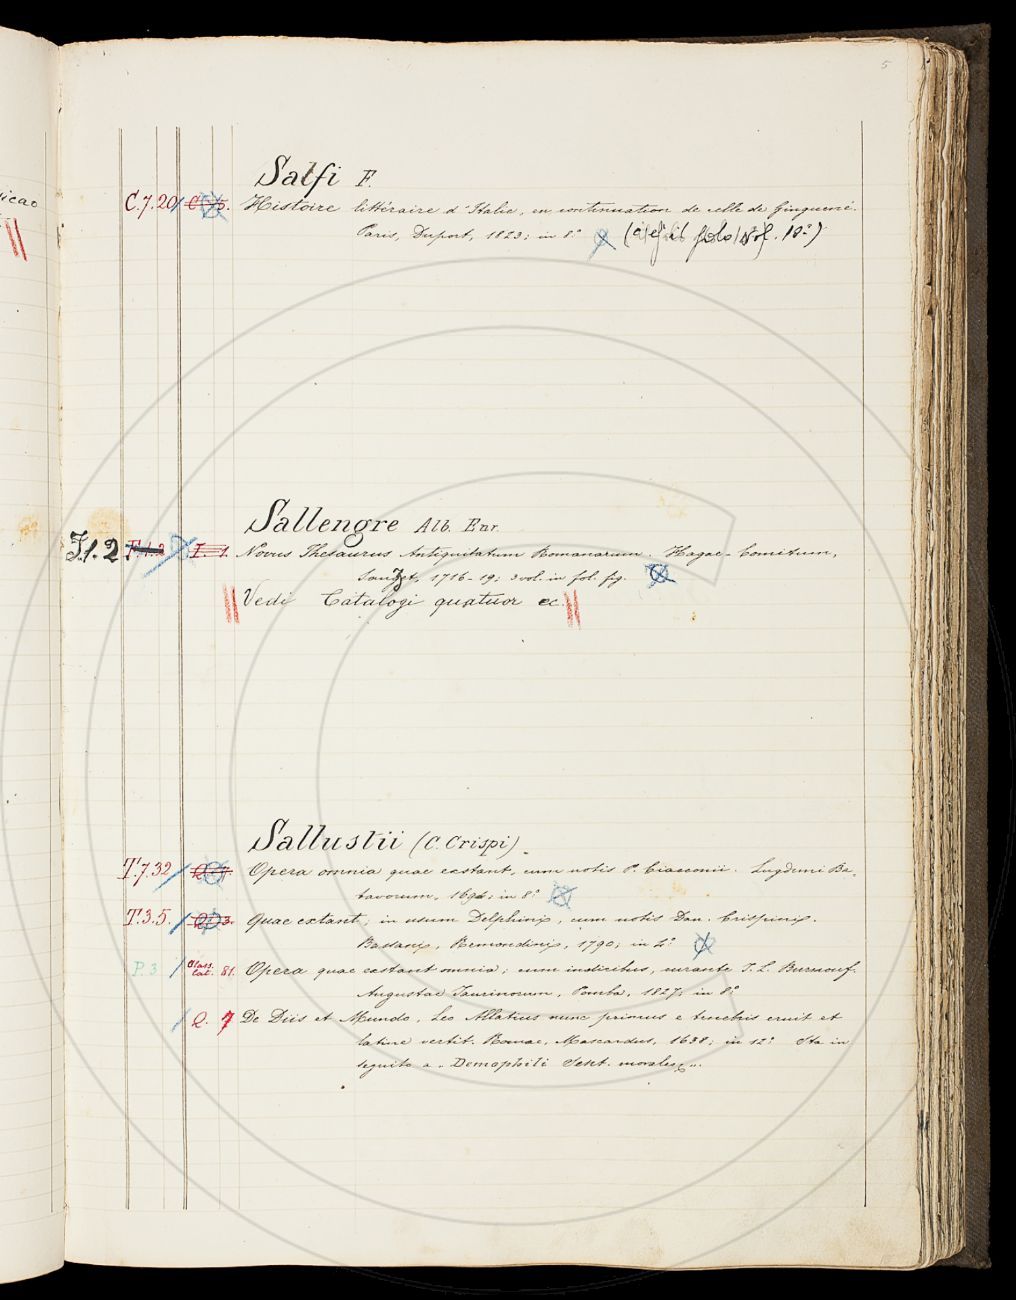 5
Salfi F.
C.7.20 Histoire littéraire d'Italie, en continuation de celle de Ginguené.
Paris, Duport, 1823; in 8.° (c'è il solo vol. 10.°)
Sallengre Alb. Enr.
I.1.2 F.1.2 I. 1. Novus Thesaurus Antiquitatum Romanarum. Hagae-Comitum,
Sauzet, 1716-19; 3 vol. in fol. fig.
Vedi Catalogi quatuor ec.
Sallustii (C. Crispi)
T.7.32 Opera omnia quae exstant, cum notis P. Ciacconii. Lugduni Ba-
tavorum, in 8.°
T.3.5. Quae extant, in usum Delphinis, cum notis Dan. Crispinis.
Bassanis, Remondinis, 1790; in 4.°
P.3 Class. lat. 81. Opera quae exstant omnia; cum indicibus, curante J. L. Burnouf.
Augustae Taurinorum, Pomba, 1827; in 8.°
Q. 7 De Diis et Mundo. Leo Allatius nunc primus e tenebris eruit et
latine vertit. Romae, Mascardus, 1638; in 12.° Sta in
seguito a "Demophili Sent. morales".